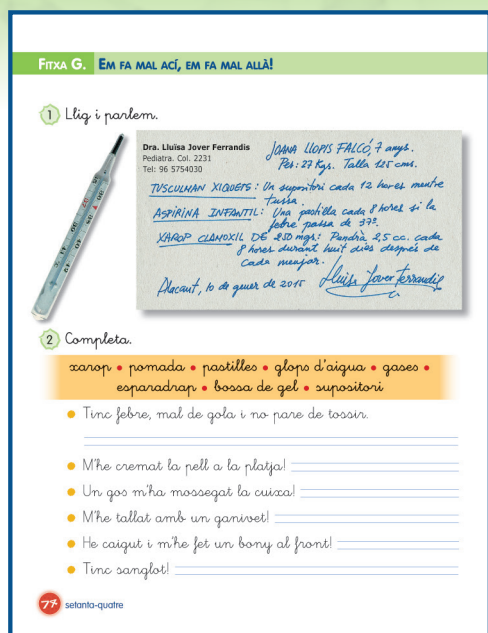 FITXA G. EM FA MAL ACÍ, EM FA MAL ALLÀ!
1 Llig i parlem.
Dra. Lluïsa Jover Ferrandis
Pediatra. Col. 2231
Tel: 96 5754030
JOANA LLOPIS FALCÓ, 7 anys.
Pes: 27 Kgs. Talla 125 cms.
TUSCULMAN XIQUETS: Un supositori cada 12 hores mentre
tussa.
ASPIRINA INFANTIL: Una pastilla cada 8 hores si la
febre passa de 37º.
XAROP CLAMOXIL DE 250 mgs: Pendrà 2,5 cc. cada
8 hores durant huit dies després de
cada menjar.
Alacant, 10 de gener de 2015 Lluïsa Jover Ferrandis
2 Completa.
xarop • pomada • pastilles • glops d'aigua • gases •
esparadrap • bossa de gel • supositori
Tinc febre, mal de gola i no pare de tossir.
M'he cremat la pell a la platja!
Un gos m'ha mossegat la cuixa!
M'he tallat amb un ganivet!
He caigut i m'he fet un bony al front!
Tinc sanglot!
74 setanta-quatre